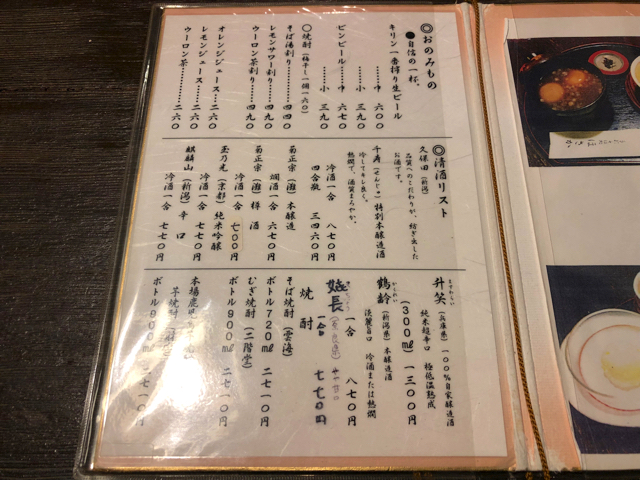 ◎おのみもの
●自信の一杯。
キリン一番搾り生ビール
………中 六〇〇
………小 三九〇
ビンビール…中 六七〇
………小 三九〇
〇焼酎(梅干し一個一六〇)
そば湯割り………四四〇
レモンサワー割り…四九〇
ウーロン茶割り……四九〇
オレンジジュース…二六〇
レモンジュース……二六〇
ウーロン茶…………二六〇
◎清酒リスト
久保田(新潟)
品質へのこだわりが、紡ぎ出した
お酒です。
千寿(せんじゅ)特別本醸造酒
冷してキレ良く。
熱燗で、酒質まろやか。
冷酒一合 八七〇円
四合瓶 三四六〇円
菊正宗(灘)本醸造
燗酒一合 六七〇円
菊正宗(灘)樽酒
冷酒一合 七〇〇円
玉乃光(京都)純米吟醸
冷酒一合 七七〇円
麒麟山(新潟)辛口
冷酒一合 七七〇円
升笑(兵庫県)一〇〇%自家醸造酒
ますわらい
純米超辛口 極低温熟成
(300㎖)一三〇〇円
鶴齢(新潟県)本醸造酒
かくれい
淡麗旨口 冷酒または熱燗
一合 八七〇円
一合 七七〇円
焼酎
そば焼酎(雲海)
ボトル720㎖ 二七一〇円
むぎ焼酎(二階堂)
ボトル900㎖ 二七一〇円
芋焼酎
ボトル900㎖ 二七一〇円